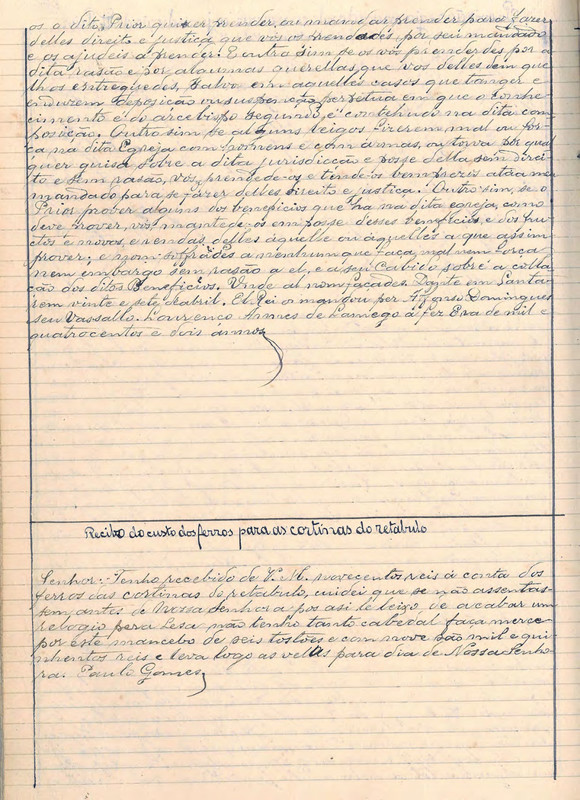 os o dito Prior quiser prender, ou mandar prender para fazer
delles direito e justiça, que vós os prendades, por seu mandado
e os ajudeis a prender. E outro sim se os vós prenderdes por a
dita rasão e por algumas querellas, que vos delles dem que
lhos entreguedes, salvo em aquelles casos que tanger e
induzem deposição ou suspensão perpetua em que o conhe-
cimento é do arcebispo segundo é contehudo na dita com-
posição. Outro sim se alguns leigos fizerem mal ou for-
ça na dita Egreja com homens e com armas, ou torva por qual
quer guisa sobre a dita jurisdicção e posse della, sem direi-
to e sem rasão, vós, prendede-os e tinde-os bem prezos até a meu
mandado para se fazer delles direito e justiça. Outro sim, se o
Prior prover alguns dos beneficios que ha na dita egreja, como
deve prover, vós, mantede-os em posse desses beneficios, e dos fru-
ctos e novos, e rendas delles áquelle ou áquelles a que assim
prover; e nom sofrades a nenhum que faça mal nem força
nem embargo sem rasão a el, e a seu Cabido sobre a colla-
ção dos ditos Beneficios. Unde al nom façades. Dante em Santa-
rem vinte e sete d'abril. El-Rei o mandou por Affonso Domingues
seu Vassallo. Lourenço Annes de Lamego a fez Era de mil e
quatrocentos e dois annos
Recibo do custo dos ferros para as cortinas do retabulo
Senhor: Tenho recebido de V. M. novecentos reis á conta dos
ferros das cortinas do retabulo, cuidei que se não assentas-
sem antes de Nossa Senhora por asi le leixo, de acabar um
relogio pera Lesa não tenho tanto cabedal faça merce
por este mancebo de seis tostões e com nove são mil e qui-
nhentos reis e leva logo as vellas para dia de Nossa Senho-
ra. Paulo Gomes